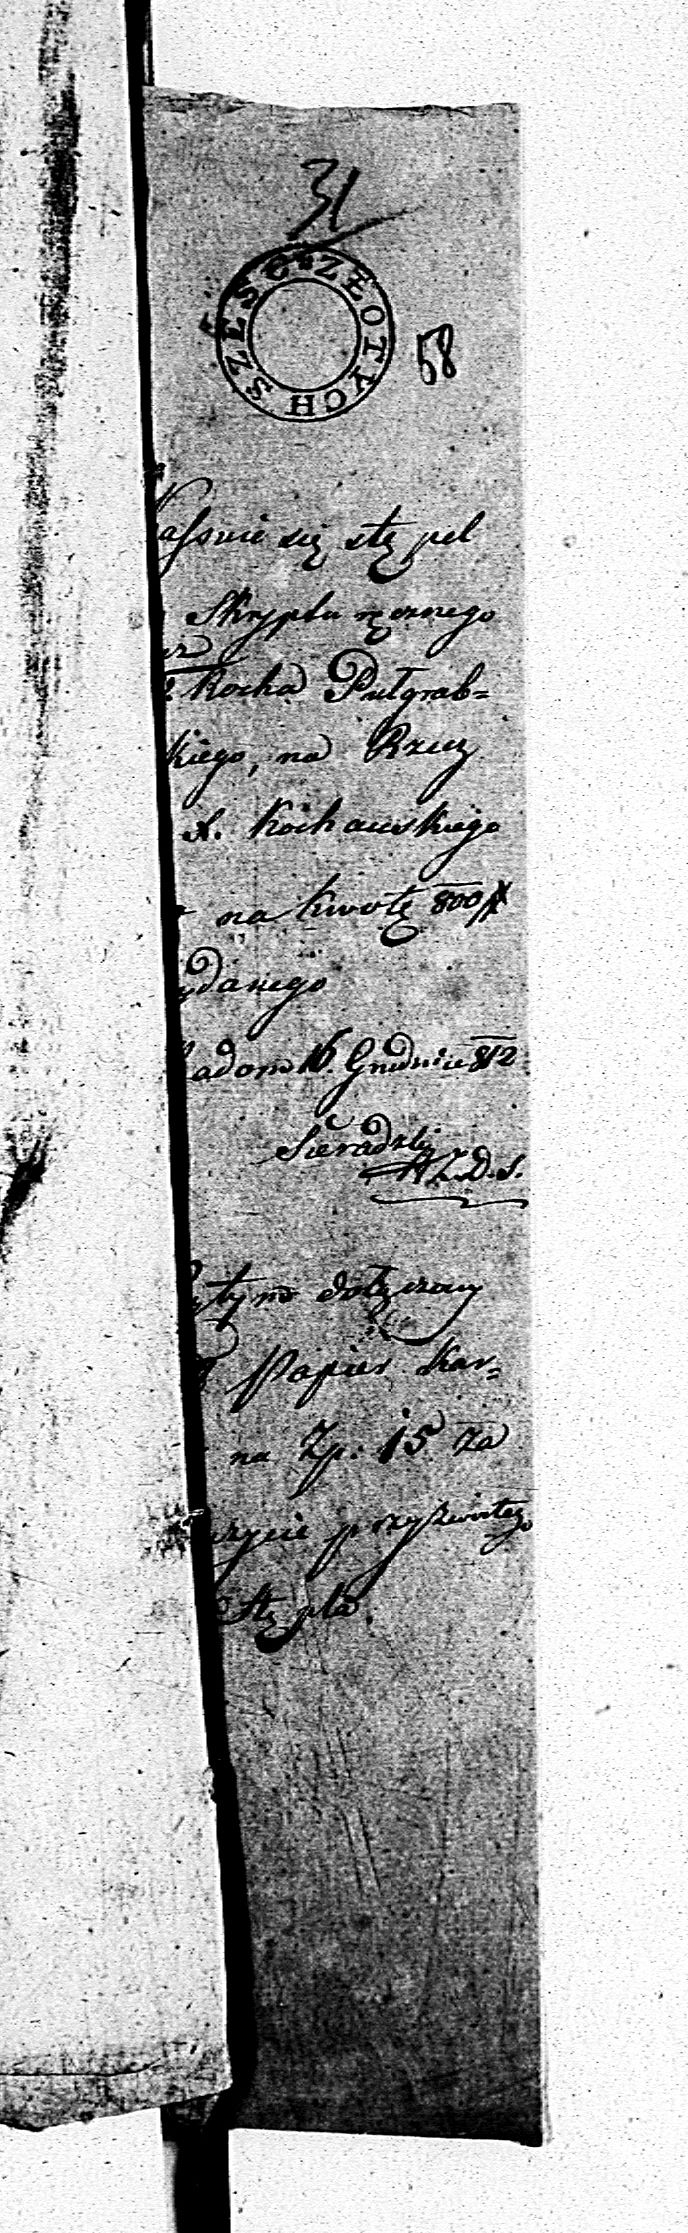 31
SZEŚĆ ZŁOTYCH
58
Kassuie się stępel
Skryptu ręcznego
Rocha Pułgrab=
skiego, na Rzecz
X. Kochanskiego
na kwotę 800
wydanego
Radom 16. Grudnia 812
Sieradzki
tym dołączony
Papier Kar=
na Zp: 15 za
użycie przyzwoitego
Stępla.